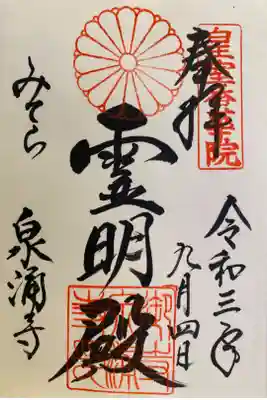 皇室香華院
奉拝
令和三年
九月四日
霊明殿
みてら
泉涌寺